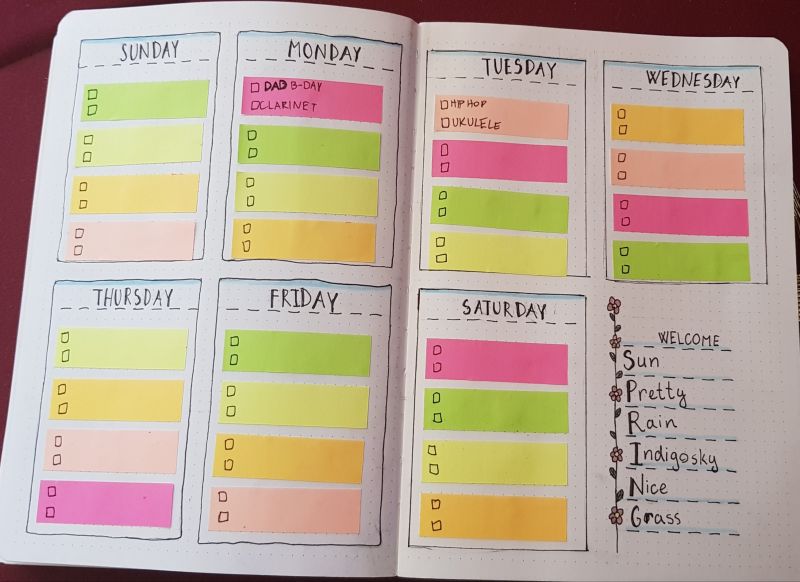 SUNDAY
MONDAY
DAD B-DAY
CLARINET
TUESDAY
HIP HOP
UKULELE
WEDNESDAY
THURSDAY
FRIDAY
SATURDAY
WELCOME
Sun
Pretty
Rain
Indigosky
Nice
Grass